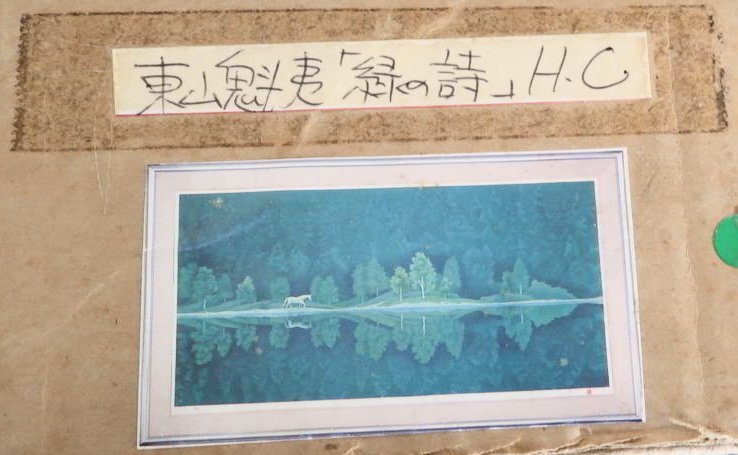 東山魁夷「緑の詩」H.C